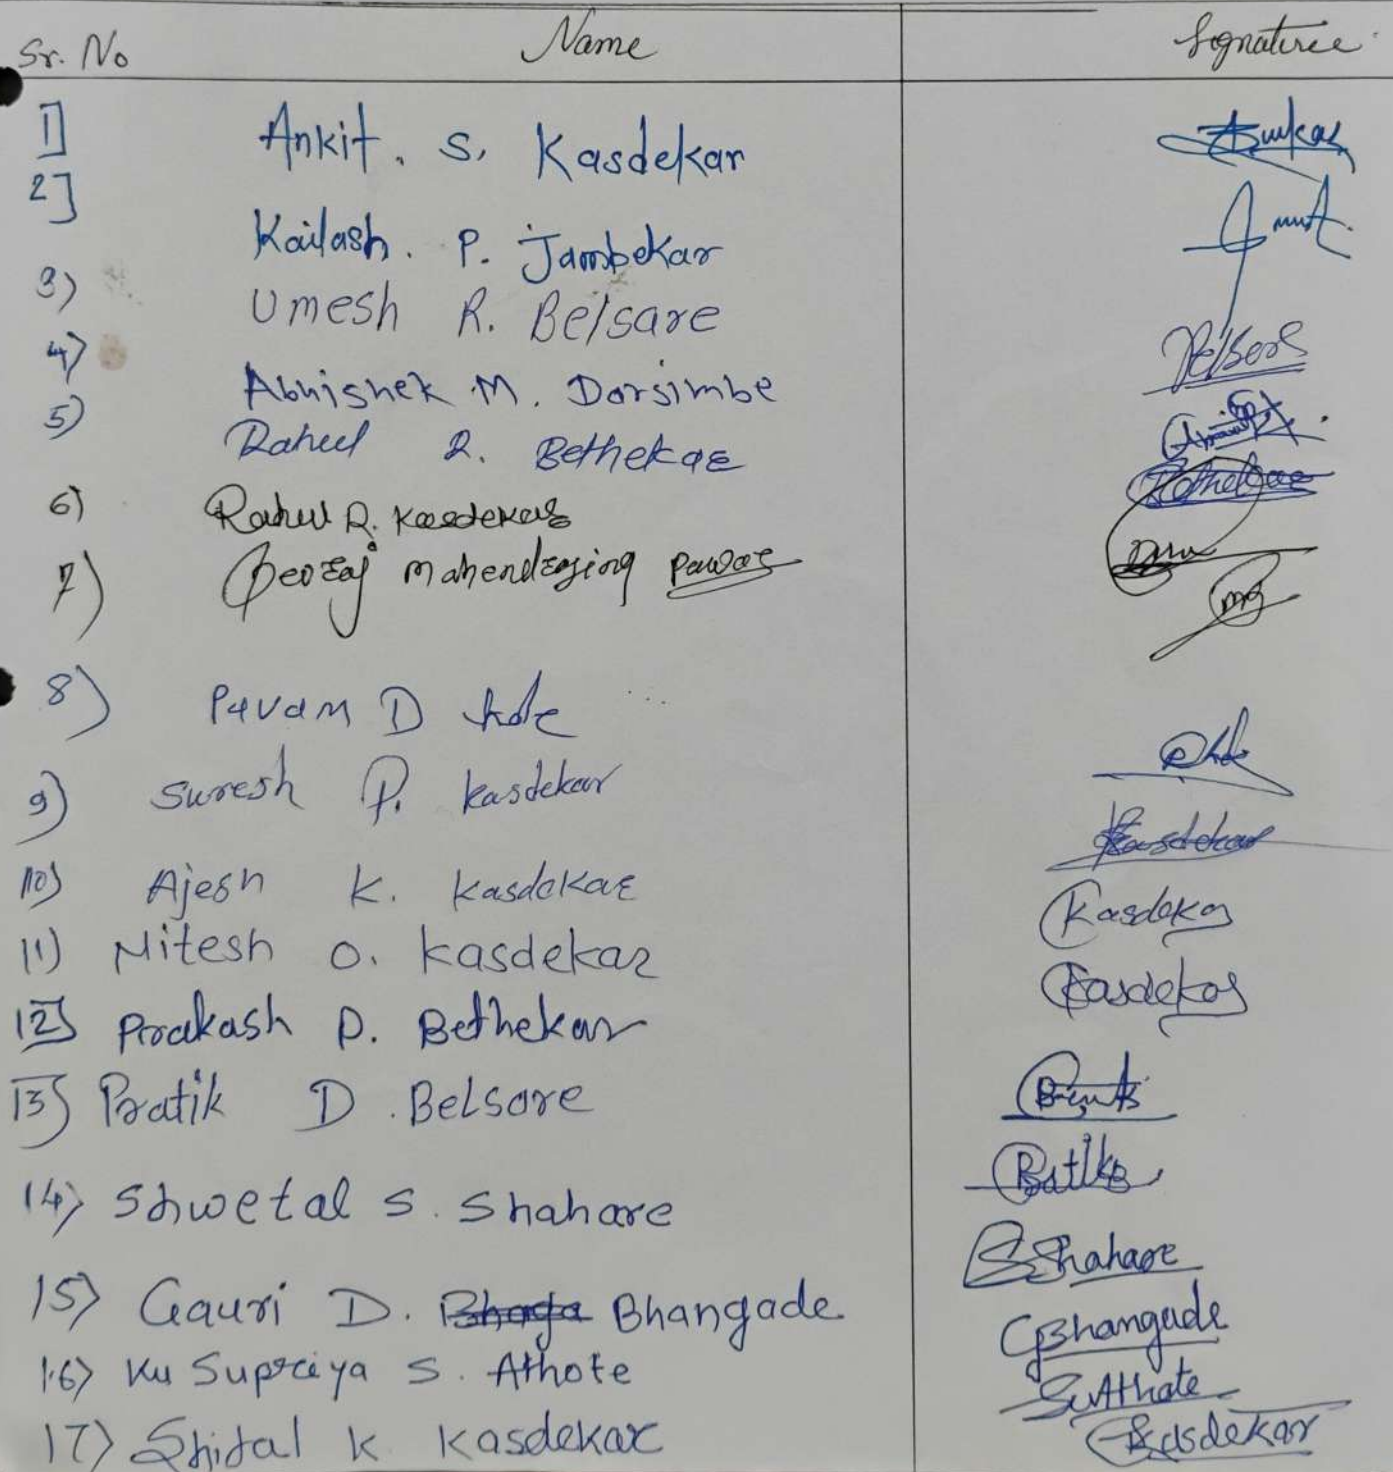 Sr. No Name Signature
1] Ankit. S. Kasdekar
2] Kailash. P. Jambekar
3) Umesh R. Belsare Belsare
4) Abhishek M. Darsimbe
5) Rahul R. Bethekar Bethekar
6) Rahul R. Kasdekar
7) Devraj Mahendrasing Pawar
8) Pavan D
9) Suresh P. Kasdekar Kasdekar
10) Ajesh K. Kasdekar Kasdekar
11) Nitesh O. Kasdekar Kasdekar
12] Prakash P. Bethekar
13] Pratik D. Belsare
14) Shwetal S. Shahare SShahare
15) Gauri D. Bhaga Bhangade GBhangade
16) Ku Supriya S. Athote
17) Shital K Kasdekar Kasdekar